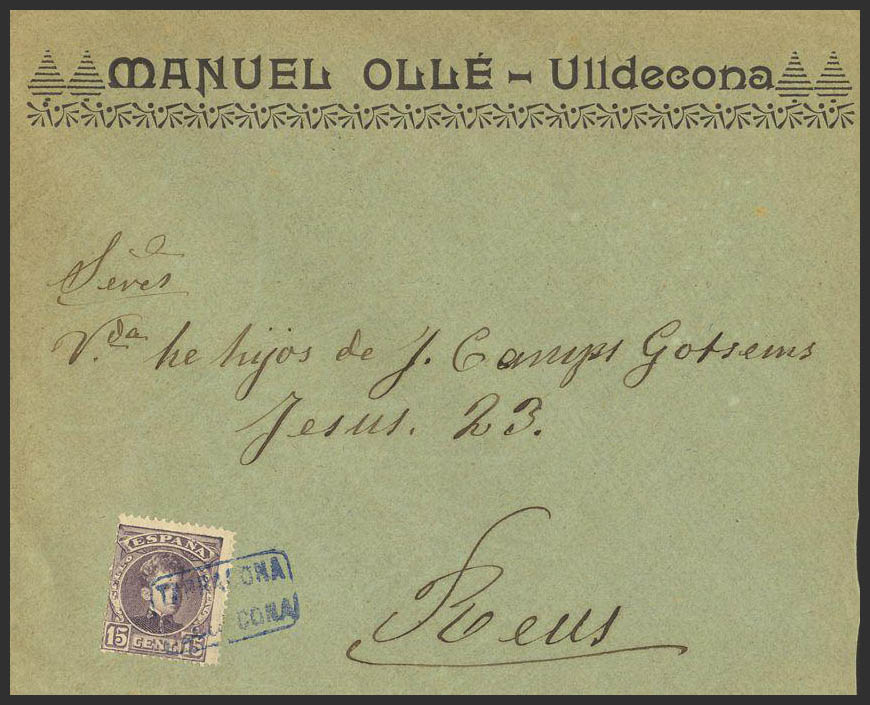 MANUEL OLLÉ - Ulldecona
Sres
V.da he hijos de J. Camps Gotsems
Jesus. 23.
Reus
ESPAÑA
15 CENTS 15
TARRAGONA
CONA